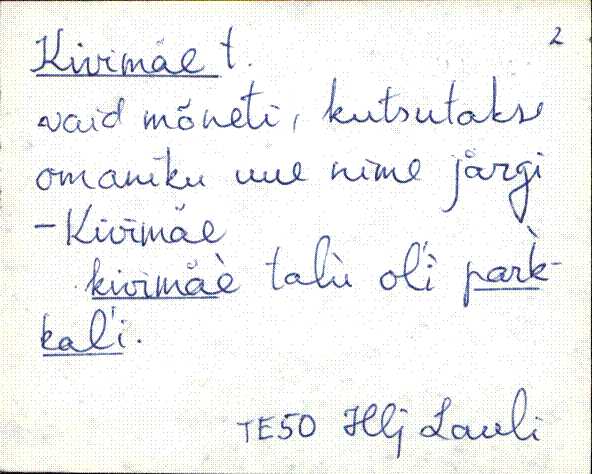 Kivimäe t. 2
vaid mõneti, kutsutakse
omaniku uue nime järgi
- Kivimäe
kivimäè talù ol'i park̀-
kal'i.
TE50 Hlj Lauli